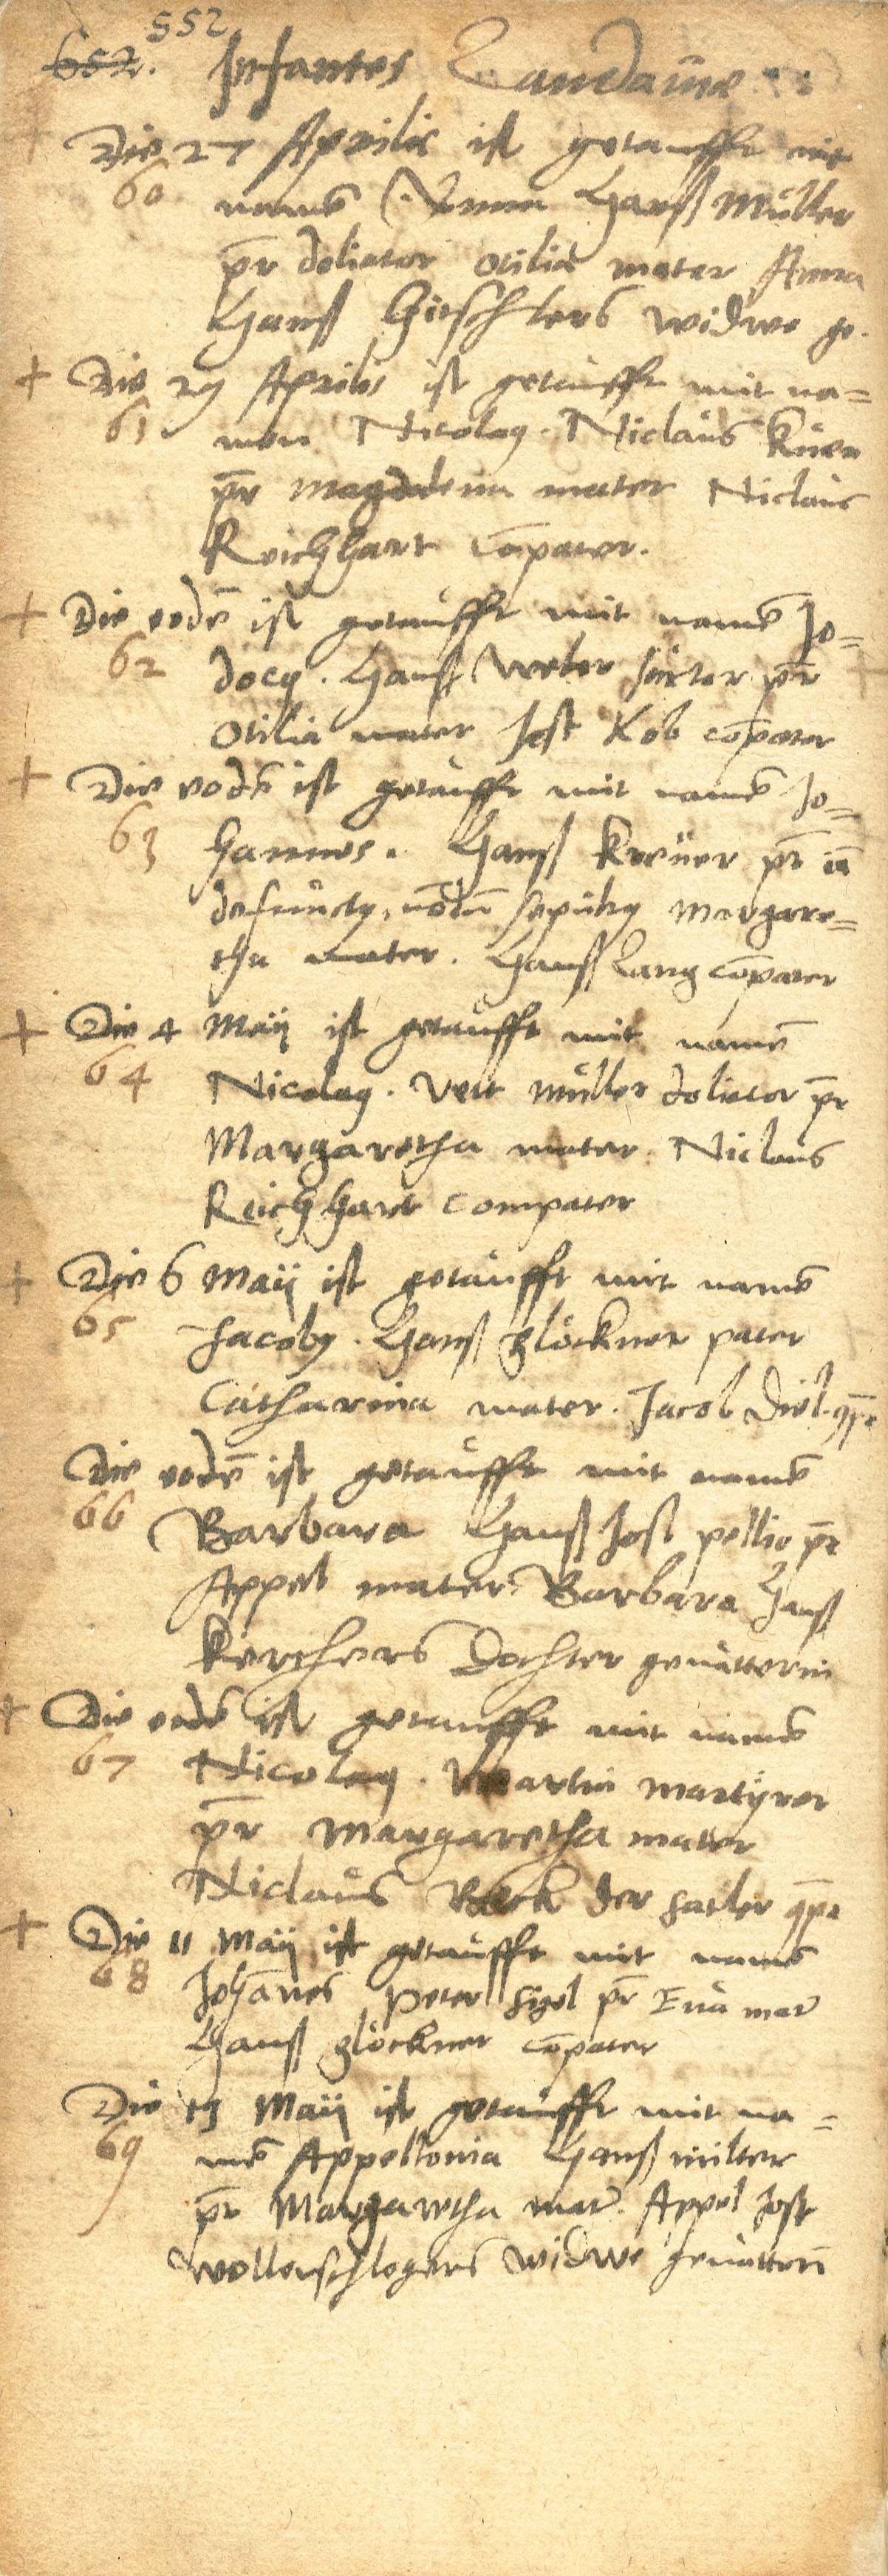 552
652. Infantes Landauiæ
Die 27 Aprilis ist getaufft mit
60 namē Anna Hanß Müller
pr̄ doliator otilia mater Anna
Hanß Girschlers widwe ge.
+ Die 29 Aprilis ist getaufft mit na=
61 men Nicolaꝰ. Niclaus Küen
pr̄ magdalena mater Niclaus
Reichhart cōpater.
+ Die eodē ist getaufft mit namē Jo=
62 docꝰ. Hanß Weber sartor pr̄
otilia mater Jost Kob cōpater
+ Die eodē ist getaufft mit namē Jo=
63 hannes. Hanß Kreüer pr̄ iā
defunctꝰ, nōdū sepultꝰ Margare=
tha mater. Hanß Lang cōpater
+ Die 4 Maij ist getaufft mit namē
64 Nicolaꝰ. Veit müller doliator pr̄
Margaretha mater. Niclaus
Reichhart compater
+ Die 6 Maij ist getaufft mit namē
65 Jacobꝰ. Hanß glöckner pater
Catharina mater. Jacob Diel
Die eodē ist getaufft mit namē
66 Barbara Hanß Jost pellio pr̄
Appel mater Barbara Hanß
Kerchers Dochter geuatterin
+ Die eodē ist getaufft mit namē
67 Nicolaꝰ. Martin martyrer
pr̄ Margaretha mater
Niclaus Beck der satler
+ Die 11 Maij ist getaufft mit namē
68 Johānes Peter sigel pr̄ Eua mat̄
Hanß glöckner cōpater
Die 13 Maij ist getaufft mit na=
69 mē Appellonia Hanß milter
pr̄ Margaretha mat̄. Appel Jost
wollenschlegers widwe geuatterī